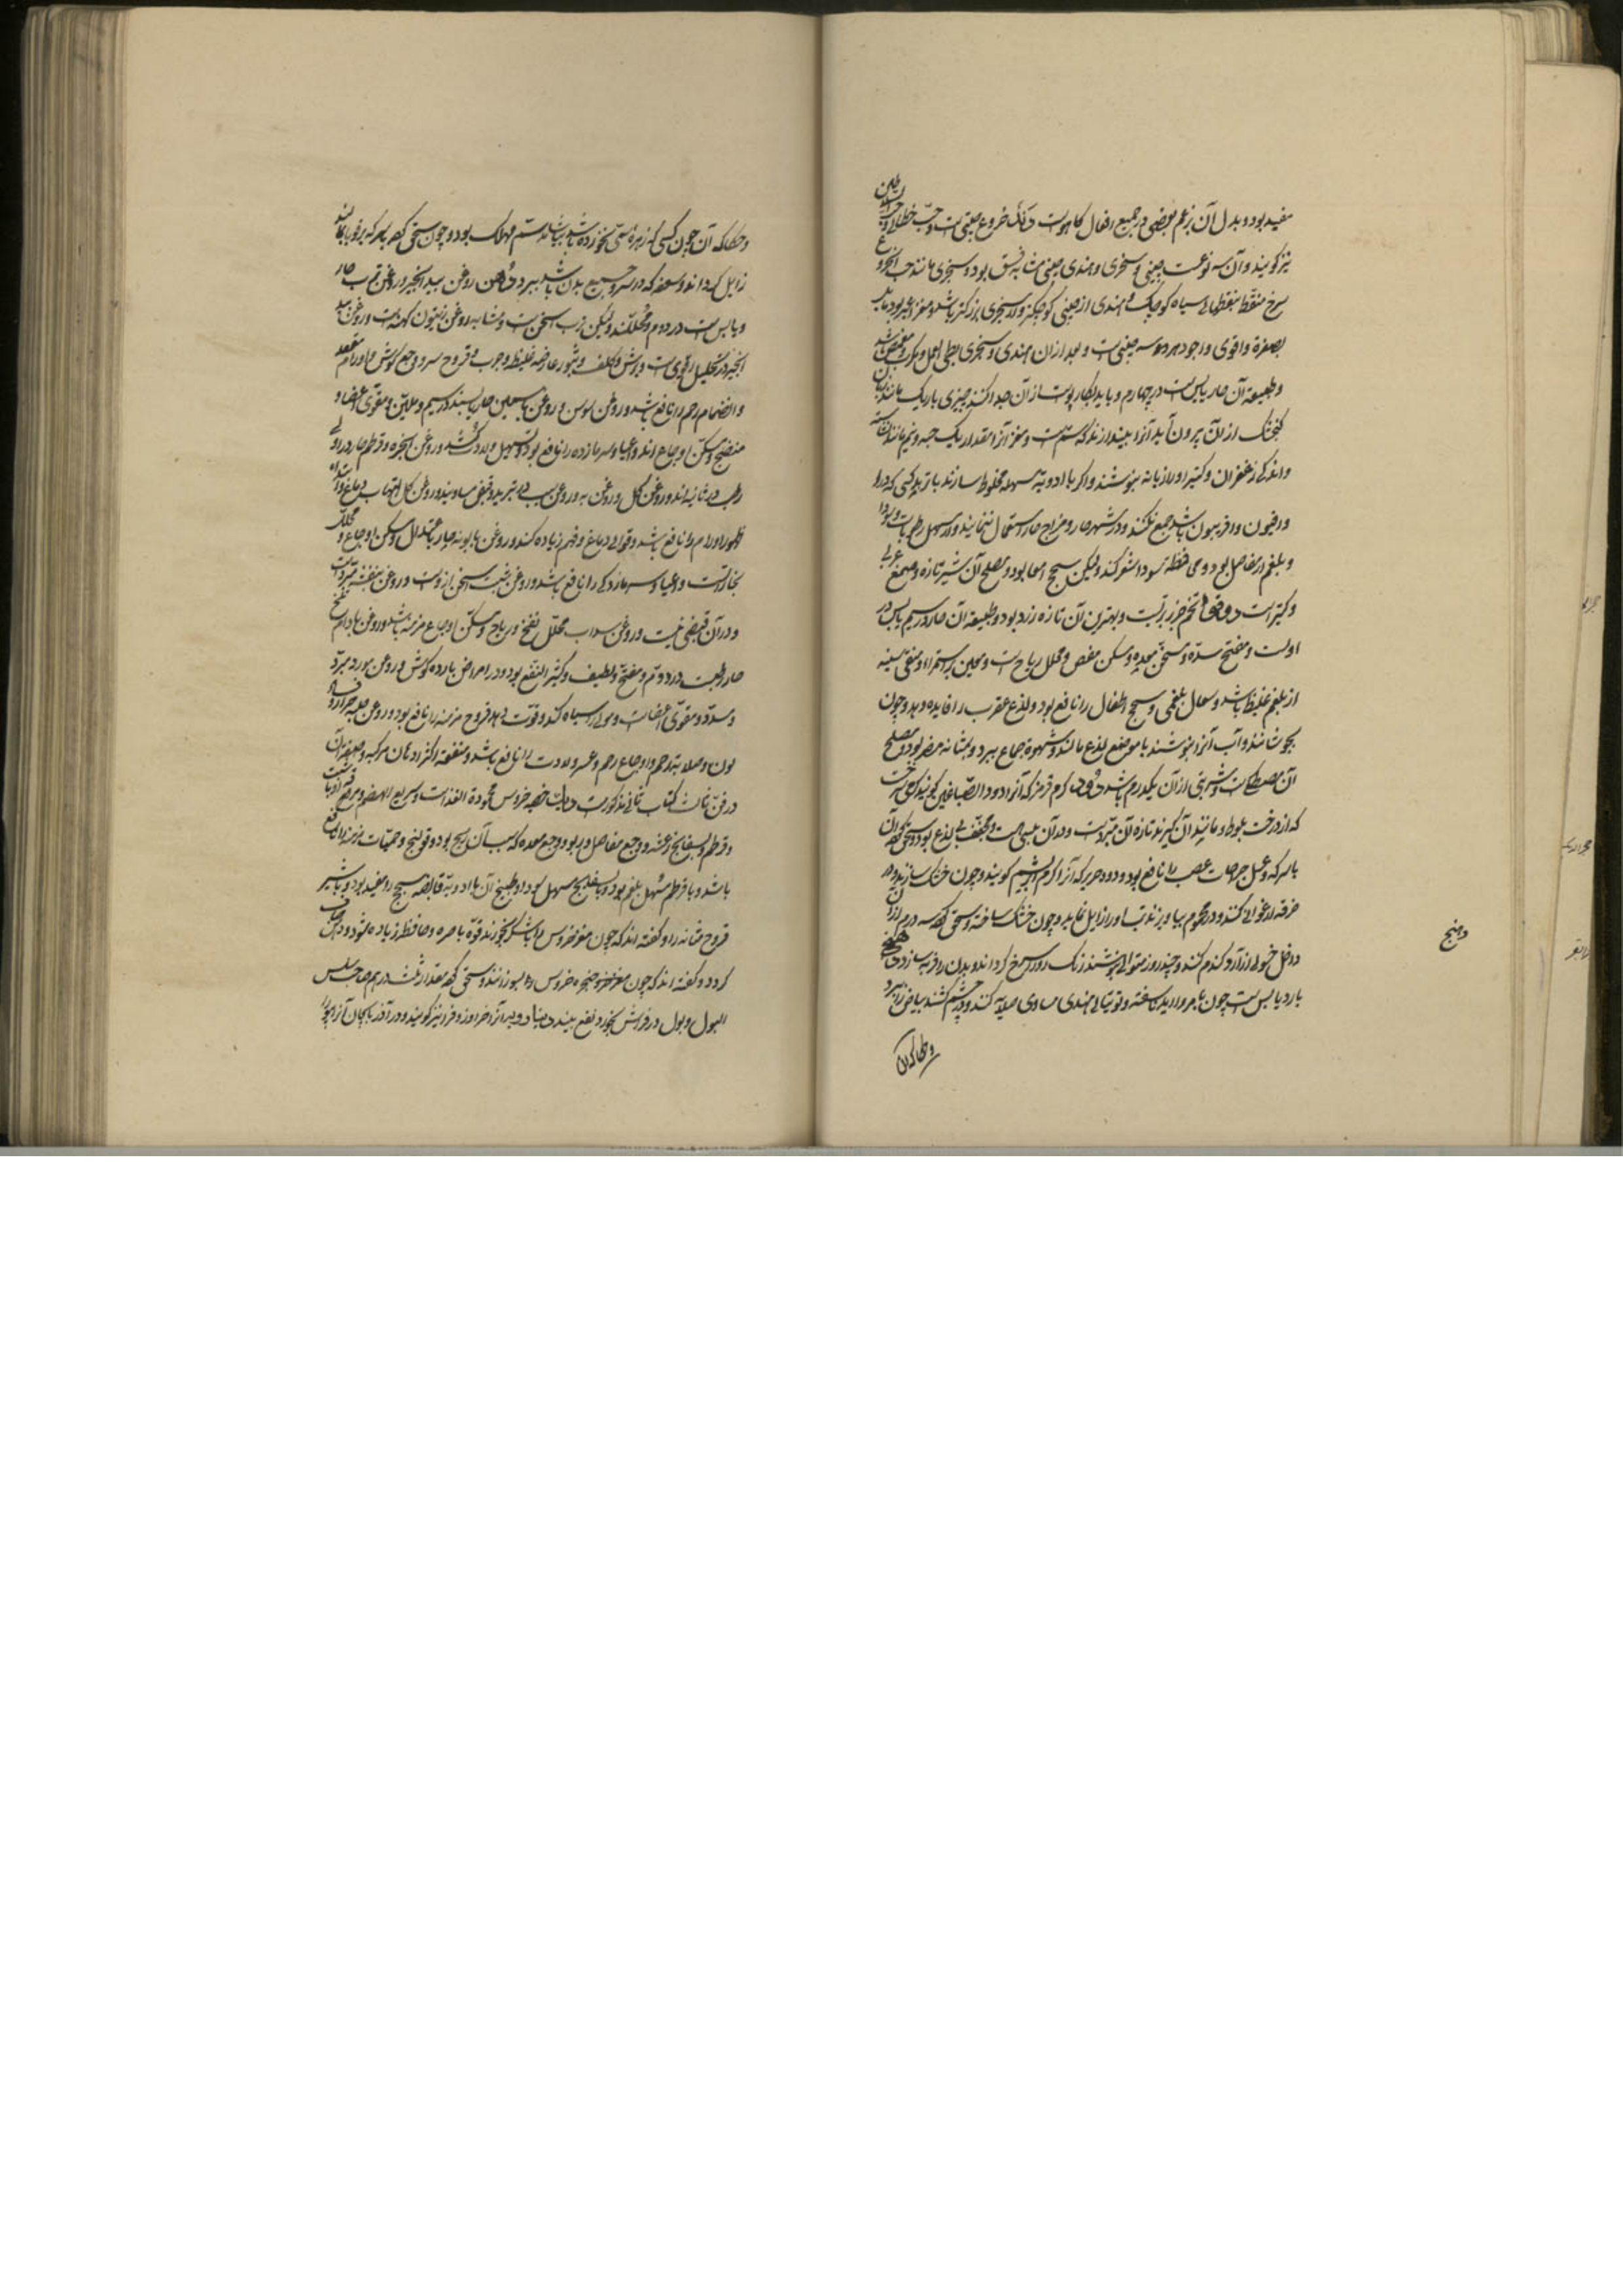 مفید بود و بدل آن بزعم بعضی در جمیع افعال کاهوست دند خروع چینی است و حب خطائی و حب السلاطین
نیز گویند و آن سه نوعست چینی و سنجری و هندی چینی مشابه فستق بود و سنجری مانند حب الخروع
سرخ منقط بنقطهای سیاه کوچک و هندی از چینی کوچکتر و از سنجری بزرکتر باشد و مغز اغبر بود مایل
بصفرة و اقوی و اجود هر سه چینی است و بعد از ان هندی و سنجری بطی العمل و مکرب و ممغص باشد
و طبیعة آن حار یابس است در چهارم و باید که پوست از آن جدا کنند چیزی باریک مانند زبان
کنجشک از ان بیرون آید آنرا بیندازند که سم است و مغز آنرا مقدار یک حبه و نیم با نشاسته
و اندکی زعفران و کتیرا و رازیانه بنوشند و اگر با ادویه مسهله مخلوط سازند با تربد کسی که دارد
و افیون و افربیون باشد جمع نکنند و در شهر حار و مزاج حار استعمال ننمایند و آن مسهل رطوبات و سودا
و بلغم از مفاصل بود و محافظه سودا شعر کند ولیکن مسحج امعا بود و مصلح آن شیر تازه و صمغ عربی
و کتیراست دوقو تخم جزر بریست و بهترین آن تازه زرد بود و طبیعة آن حار در سیم یابس در
اولست و مفتح سده و مسخن معده و مسکن مغص و محلل ریاح است و معین بر استمراء و منقی سینه
از بلغم غلیظ باشد و سعال بلغمی و سحج اطفال را نافع بود و لذع عقرب را فایده دهد و چون
بجوشانند و آب آنرا بنوشند یا موضع لذع مالند و شهوة جماع ببرد و بمثانه مضر بود و مصلح
آن مصطکی است و شربتی از آن یکدرم باشد دود کرم قرمز که آنرا دود الصباغین گویند کرمی است
که از درخت بلوط و مانند آن گیرند تازه آن مبرد است و در آن یبسی است و مجفف بی لذع بود و سحق کرده آن
با سرکه و عسل جراحات عصب را نافع بود و دود حریر که آنرا کرم ابریشم گویند و چون خشک سازند و در
خرقه ارغوانی کنند و در محموم بیاویزند تب او را زایل نماید و چون خشک ساخته و سحق کرده سه درم از ان
داخل حولی از آرد کندم کنند و چند روز متوالی بنوشند رنگ رو را سرخ گرداند و بدن را فربه سازد دهنج
بارد یابس است چون با مروارید ناسفته و توتیای هندی مساوی صلایه کنند و در چشم کشند بیاض را ببرد
و حکاکه آن
دهنج
و حکاکه آن چون کسی که زهر سمی بخورد باشد بیاشامد سم مهلک بود و چون سحق کرده با سرکه بر قوبا مالند
زایل گرداند و سعفه که در سر و جمیع بدن باشد ببرد دهن روغن بید انجیر و روغن ترب حار
و یابس است در دوم و محللند ولیکن ترب اسخن است و مشابه روغن زیتون کهنه است و روغن بید
انجیر در تحلیل اقوی است و برش و کلف و بثور عارضه غلیظ و جرب و قروح سر و وجع گوش و اورام مقعد
و انضمام رحم را نافع باشد و روغن سوسن و روغن یاسمین حار یابسند در سیم و ملین و مقوی اعضا و
منضج و مسکن اوجاع اند و اعیا و سرمازده را نافع بود و تسهیل ولادت کند و روغن انجره و قرطم حار در اولی
رطب در ثانیه اند و روغن گل و روغن به و روغن سیب در تبرید و قبض مساویند و روغن گل التهاب دماغ و ابتداء
ظهور اورام را نافع باشد و قوای دماغ و فهم زیاده کند و روغن بابونه حار باعتدال و مسکن اوجاع و محلل
بخاراتست و اعیا و سرمازدگی را نافع باشد و روغن شبت اسخن از وست و روغن بنفشه مبرد است
و در آن قبضی نیست و روغن سداب محلل نفخ و ریاح و مسکن اوجاع مزمنه باشد و روغن بادام تلخ
حار رطب در دوم و مفتح و لطیف و کثیر النفع بود و در امراض بارده گوش و روغن مورد مبرد
و مسدد و مقوی اعضاست و موی را سیاه کند و قوت دهد قروح مزمنه را نافع بود و روغن حلبه حرارة و فساد
لون و صلابة رحم و اوجاع رحم و عسر ولادت را نافع باشد و منفعة اکثر ادهان مرکبه و صنعة آن
در فن ثالث کتاب ثانی مذکورست دیک خصیه خروس محمودة الغذاست و سریع الهضم و مرق او با شبت
و قرطم و بسفایج رعشه و وجع مفاصل و ربو و وجع معده که سبب آن ریح بود و قولنج و حمیات مزمنه را نافع
باشد و با قرطم مسهل بلغم بود و با بسفایج مسهل سودا و طبیخ آن با ادویه قابضه سحج را مفید بود و با شیر
قروح مثانه را و گفته اند که چون مغز خروس را با شکر بخورند قوة باصره و حافظه زیاده شود و ذهن صاف
گردد و گفته اند که چون حنجره خروس را بسوزانند و سحق کرده مقدار ثلث درهم صاحب سلس
البول و بول در فراش بخورد نفع بیند دینارویه آنرا حزا و زوفرا نیز گویند و در آذربایجان آنرا